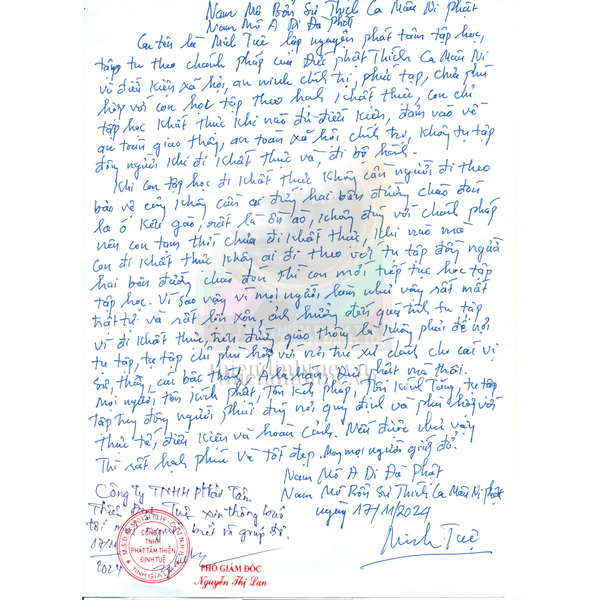 Nam Mô Bổn Sư Thích Ca Mâu Ni Phật
Nam Mô A Di Đà Phật
Con tên là Minh Tuệ lập nguyện phát tâm tập học,
tập tu theo chánh pháp của Đức phật Thích Ca Mâu Ni
vì điều kiện xã hội, an ninh chính trị, phức tạp, chưa phù
hợp với con học tập theo hạnh khất thực, con chỉ
tập học khất thực khi nào đủ điều kiện, đảm bảo về
an toàn giao thông, an toàn xã hội chính trị, không tụ tập
đông người khi đi khất thực và đi bộ hành.
Khi con tập học đi khất thực không cần người đi theo
bảo vệ cũng không cần ai đứng hai bên đường chào đón
la ó kêu gào, rất là ồn ào, không đúng với chánh pháp
nên con tạm thời chưa đi khất thực, khi nào mà
con đi khất thực không ai đi theo với tụ tập đông người
hai bên đường chào đón thì con mới tiếp tục học tập
tập học. Vì sao vậy vì mọi người làm như vậy rất mất
trật tự và rất lộn xộn, ảnh hưởng đến quá trình tu tập
vì đi khất thực, trên đường giao thông là không phải để nơi
tu tập, tu tập chỉ phù hợp với nơi trú xứ dành cho các vị
sư, thầy, các bậc thầy, Sa môn, Đức phật mà thôi.
Mọi người tôn kính phật, tôn kính pháp, tôn kính Tăng, tu tập
tập trung đông người phải đúng nơi quy định và phù hợp với
thực tế, điều kiện và hoàn cảnh. Nếu được như vậy
Thì rất hạnh phúc và tốt đẹp. Mong mọi người giúp đỡ.
Nam Mô A Di Đà Phật
Nam Mô Bổn Sư Thích Ca Mâu Ni Phật
ngày 17/11/2024
Minh Tuệ
Công ty TNHH Phát Tâm
Thiền Định Tuệ xin thông báo
tới mọi người biết và giúp đỡ.
17/11
2024
CÔNG TY
TNHH
PHÁT TÂM THIỀN
ĐỊNH TUỆ
TỈNH GIA LAI
PHÓ GIÁM ĐỐC
Nguyễn Thị Lan